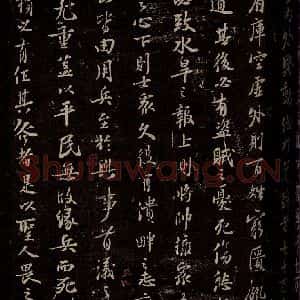 庫空虚外則百姓窮匱飢
其後必有盗賊憂死傷愁
致水旱之報上則將帥擁衆
之心下則士衆久役有潰畔之志
皆由用兵至於興事首議
尤重蓋以平民無故緣兵而死
必有任其咎者是以聖人畏之
Shufawang.CN